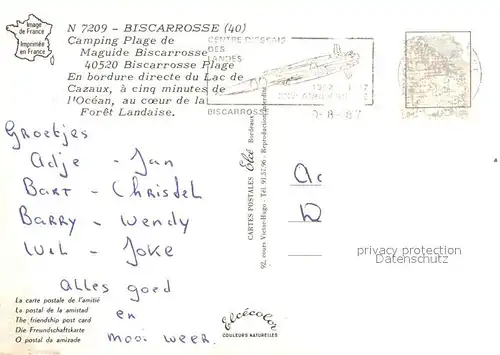 Image
de France
Imprimée
en France
N 7209 - BISCARROSSE (40)
Camping Plage de
Maguide Biscarrosse
40520 Biscarrosse Plage
En bordure directe du Lac de
Cazaux, à cinq minutes de
l'Océan, au cœur de la
Forêt Landaise.
CENTRE D'ESSAIS
DES
LANDES
BISCARROSSE
Groetjes
Adje - Jan
Bart - Christel
Barry - Wendy
Wil - Joke
Alles goed
en
mooi weer.
La carte postale de l'amitié
La postal de la amistad
The friendship post card
Die Freundschaftskarte
O postal da amizade
CARTES POSTALES Elcé Bordeaux
92, cours Victor-Hugo - Tél. 91.57.96 - Reproduction interdite
Elcécolor
COULEURS NATURELLES
privacy protection
www.ansichtskartenversand.com